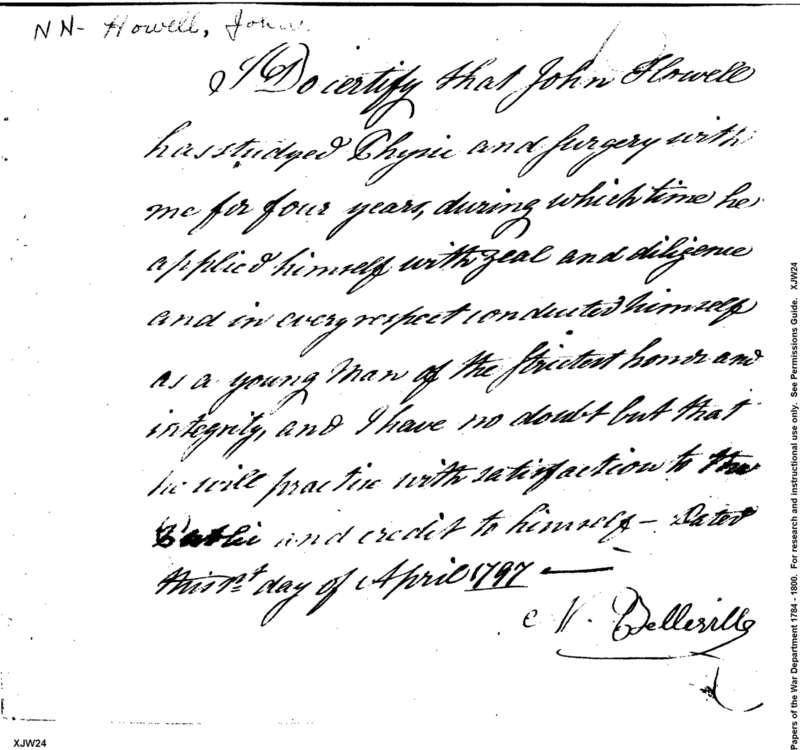 NN- Howell, John.
I Do certify that John Howell
has studyed Physic and Surgery with
me for four years, during which time he
applied himself with zeal and diligence
and in every respect conducted himself
as a young Man of the strictest honor and
integrity, and I have no doubt but that
he will practise with satisfaction to the
Public and credit to himself – Dated
this 1st day of April 1797 —
N. Belleville
XJW24
Papers of the War Department 1784 - 1800. For research and instructional use only. See Permissions Guide. XJW24